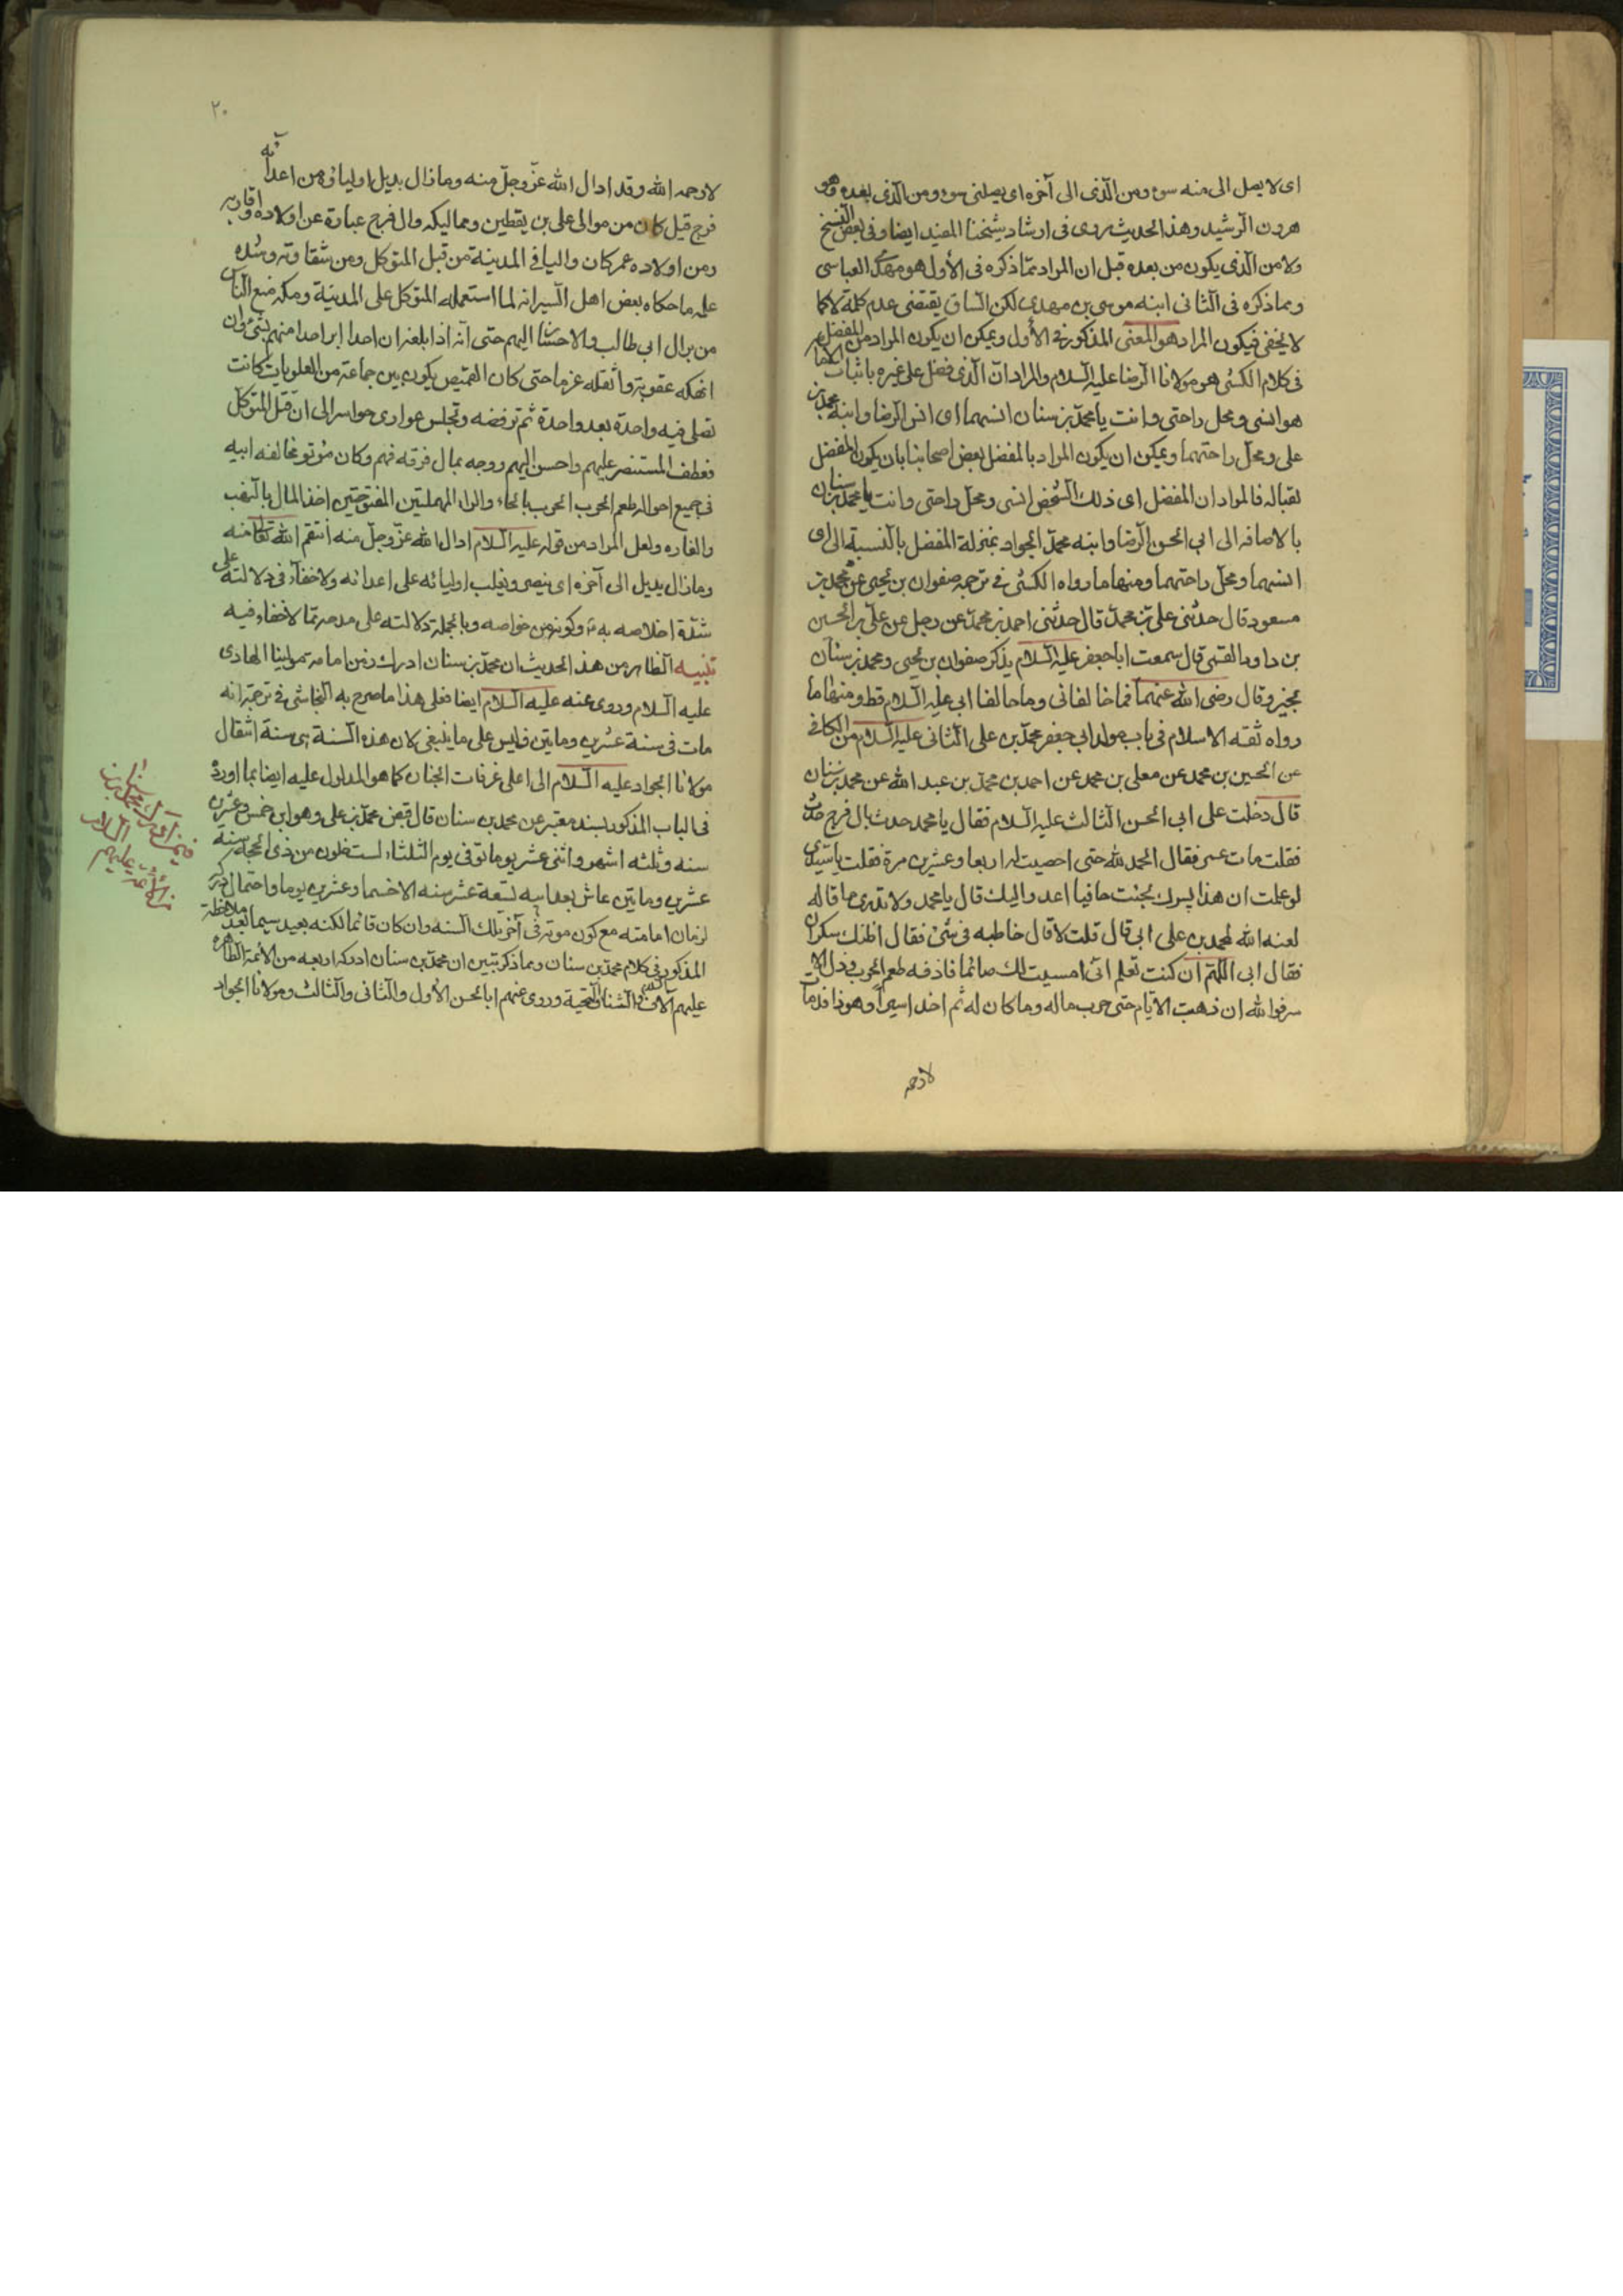 اى لا يصل الى منه سوء ومن الذى الى آخره اى يصلنى سوء ومن الذى بعده وهو
هرون الرشيد وهذا الحديث مروى فى ارشاد شيخنا المفيد ايضا وفى بعض النسخ
ولا من الذى يكون من بعده قيل ان المراد مما ذكره فى الأول هو مهدى العباسى
ومما ذكره فى الثانى ابنه موسى بن مهدى لكن السياق يقتضى عدم كلمة لا كما
لا يخفى فيكون المراد هو المعنى المذكور فى الأول ويمكن ان يكون المراد من المفضل
فى كلام الكشى هو مولانا الرضا عليه السلام والمراد ان الذى فضل على غيره باثبات الامامة
هو انسى ومحل راحتى وانت يا محمد بن سنان انسهما اى انس الرضا وابنه محمد بن
على ومحل راحتهما ويمكن ان يكون المراد بالمفضل بعض اصحابنا بان يكون المفضل
لقبا له فالمراد ان المفضل اى ذلك الشخص انسى ومحل راحتى وانت يا محمد بن سنان
بالاضافه الى ابى الحسن الرضا وابنه محمد الجواد بمنزلة المفضل بالنسبة الى اى
انسهما ومحل راحتهما ومنها ما رواه الكشى فى ترجمه صفوان بن يحيى عن محمد بن
مسعود قال حدثنى على بن محمد قال حدثنى احمد بن محمد عن رجل عن على بن الحسين
بن داود القمى قال سمعت ابا جعفر عليه السلام يذكر صفوان بن يحيى ومحمد بن سنان
بخير وقال رضى الله عنهما فما خالفانى وما خالفا ابى عليه السلام قط ومنها ما
رواه ثقه الاسلام فى باب مولد ابى جعفر محمد بن على الثانى عليه السلام من الكافى
عن الحسين بن محمد عن معلى بن محمد عن احمد بن محمد بن عبد الله عن محمد بن سنان
قال دخلت على ابى الحسن الثالث عليه السلام فقال يا محمد حدث بال فرج حدث
فقلت مات عمر فقال الحمد لله حتى احصيت له اربعا وعشرين مرة فقلت يا سيدى
لو علمت ان هذا يسرك لجئت حافيا اعدو اليك قال يا محمد ولا تدرى ما قاله
لعنه الله لمحمد بن على ابى قال قلت لا قال خاطبه فى شئ فقال اظنك سكران
فقال ابى اللهم ان كنت تعلم انى امسيت لك صائما فاذقه طعم الحرب وذل الا
سر فوالله ان ذهبت الايام حتى حرب ماله وما كان له ثم اخذ اسيرا وهو ذا قد مات
لا رحمه
٢٠
لا رحمه الله وقد ادال الله عز وجل منه وما زال يديل اولياؤه من اعدائه
فرج قيل كان من موالى على بن يقطين ومماليكه وال فرج عبارة عن اولاده واقاربه
ومن اولاده عمر كان واليا فى المدينة من قبل المتوكل ومن شقاوته وشده
عليه ما حكاه بعض اهل السير انه لما استعمله المتوكل على المدينة ومكه منع الناس
من بر ال ابى طالب والاحسان اليهم حتى انه اذا بلغه ان احدا ابر احدا منهم بشئ وان
انهكه عقوبة واثقله غرما حتى كان القميص يكون بين جماعة من العلويات كانت
تصلى فيه واحدة بعد واحدة ثم ترفعه وتجلس عوارى حواسر الى ان قتل المتوكل
فعطف المستنصر عليهم واحسن اليهم ووجه بمال فرقه فهم وكان يؤثر مخالفه ابيه
فى جميع احواله طعم الحرب الحرب بالحاء والراء المهملتين المفتوحتين اخذ المال بالنهب
والغاره ولعل المراد من قوله عليه السلام ادال الله عز وجل منه انتقم الله تعالى منه
وما زال يديل الى آخره اى ينصر ويغلب اوليائه على اعدائه ولا خفاء فى دلالته على
شدة اخلاصه به وكونه من خواصه وبالجملة دلالته على مدحه مما لا خفاء فيه
تنبيه الظاهر من هذا الحديث ان محمد بن سنان ادرك زمن امامة مولينا الهادى
عليه السلام وروى عنه عليه السلام ايضا فعلى هذا ما صرح به النجاشى فى ترجمته انه
مات فى سنة عشرين ومايتين فليس على ما ينبغى لان هذه السنة هى سنة انتقال
مولانا الجواد عليه السلام الى اعلى غرفات الجنان كما هو المدلول عليه ايضا بما اورده
فى الباب المذكور بسند معتبر عن محمد بن سنان قال قبض محمد بن على وهو ابن خمس وعشرين
سنه وثلثه اشهر واثنى عشر يوما توفى يوم الثلثاء لست خلون من ذى الحجه سنة
عشرين ومايتين عاش بعد ابيه تسعة عشر سنه الا خمسا وعشرين يوما واحتمال دركه
لزمان امامته مع كون موته فى آخر تلك السنه وان كان قائما لكنه بعيد سيما بعد ملاحظة
المذكور فى كلام محمد بن سنان ومما ذكر تبين ان محمد بن سنان ادرك اربعه من الأئمة الطاهره
عليهم آلاف الثناء والتحية وروى عنهم ابا الحسن الأول والثانى والثالث ومولانا الجواد
محمد بن سنان
من الأئمة عليهم السلام